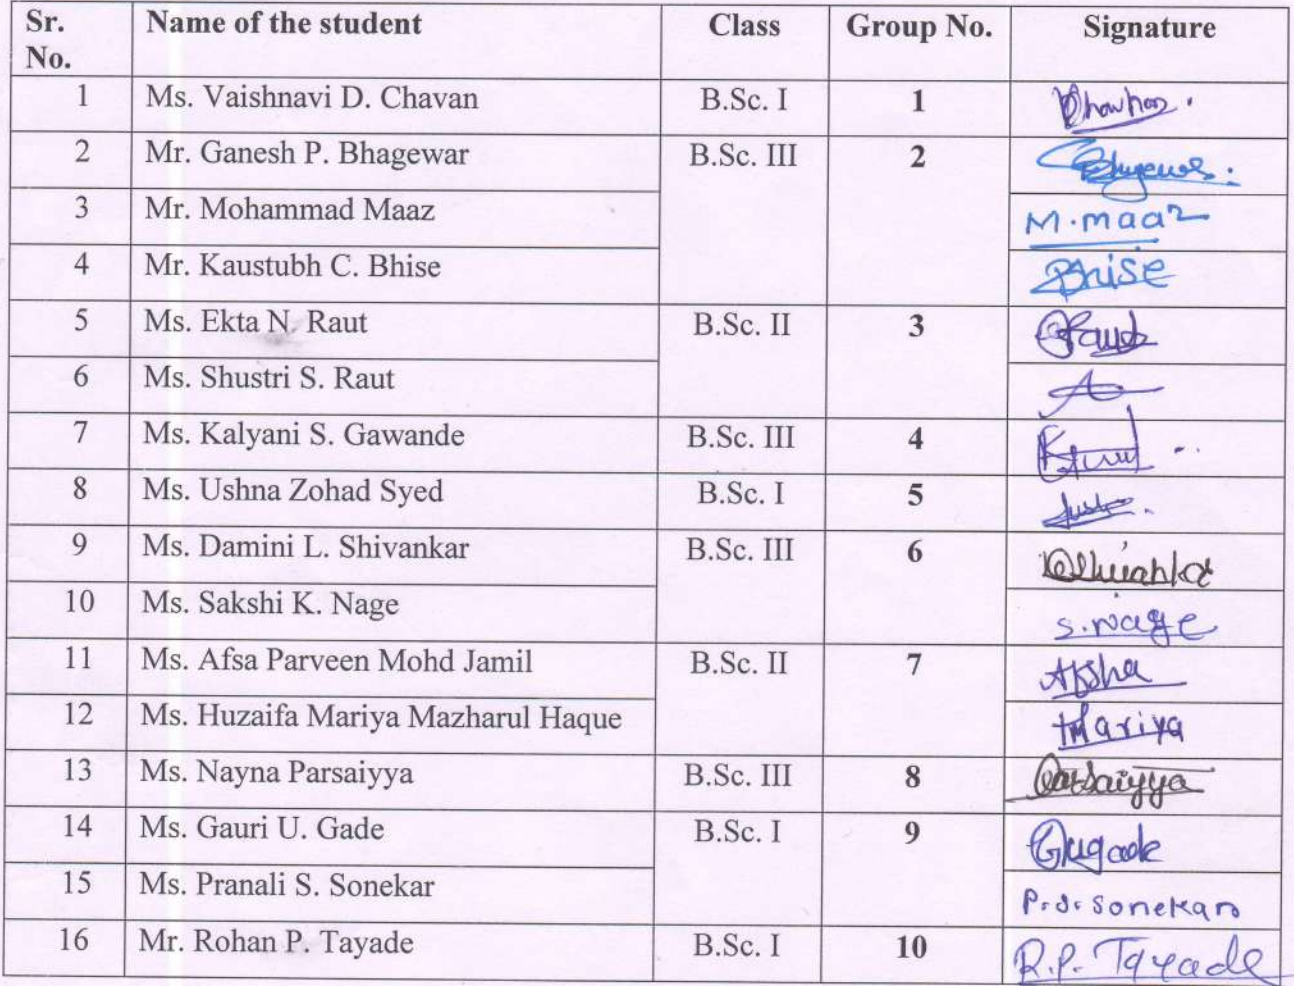 Sr. No. Name of the student Class Group No. Signature
1 Ms. Vaishnavi D. Chavan B.Sc. I 1
2 Mr. Ganesh P. Bhagewar B.Sc. III 2
3 Mr. Mohammad Maaz M.maaz
4 Mr. Kaustubh C. Bhise Bhise
5 Ms. Ekta N. Raut B.Sc. II 3
6 Ms. Shustri S. Raut
7 Ms. Kalyani S. Gawande B.Sc. III 4
8 Ms. Ushna Zohad Syed B.Sc. I 5
9 Ms. Damini L. Shivankar B.Sc. III 6
10 Ms. Sakshi K. Nage S.Nage
11 Ms. Afsa Parveen Mohd Jamil B.Sc. II 7
12 Ms. Huzaifa Mariya Mazharul Haque Mariya
13 Ms. Nayna Parsaiyya B.Sc. III 8 Parsaiyya
14 Ms. Gauri U. Gade B.Sc. I 9 Gugade
15 Ms. Pranali S. Sonekar P.S.Sonekar
16 Mr. Rohan P. Tayade B.Sc. I 10 R.P. Tayade